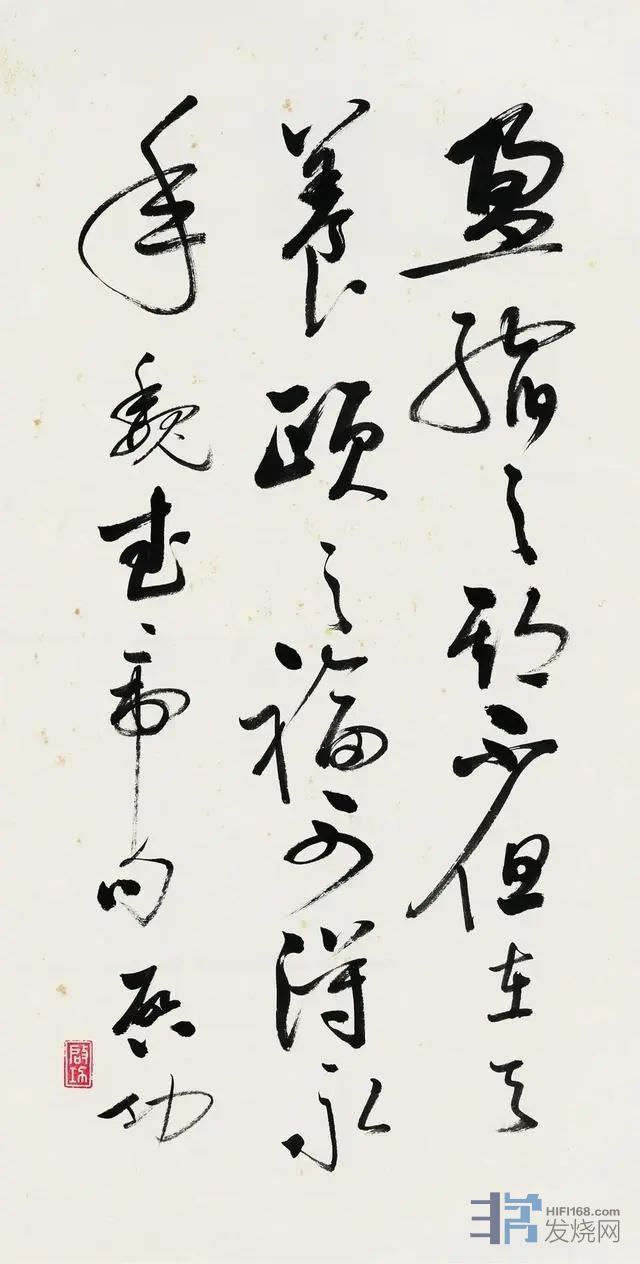 盈縮之期不但在天
養頤之福可得永
年 魏武帝句 启功
啟功
HIFI168.com
发烧网